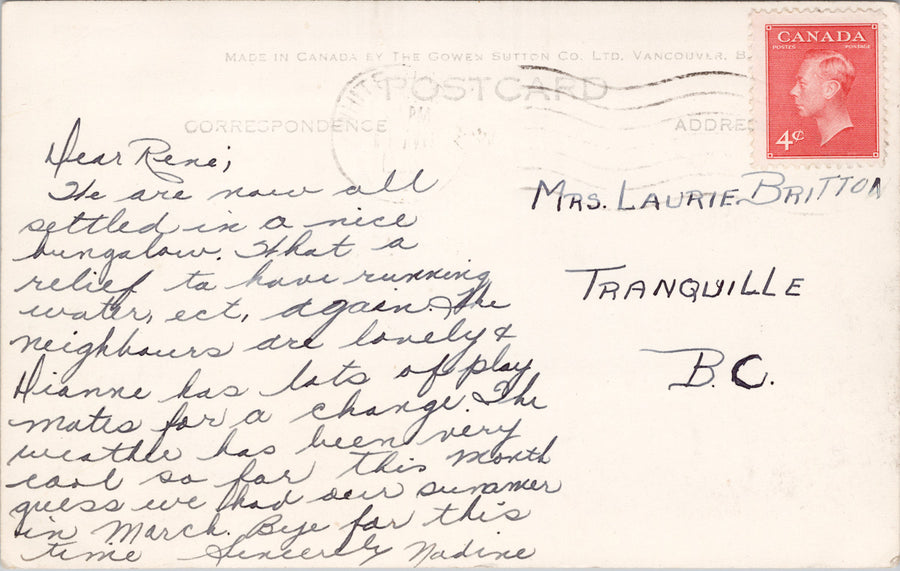 MADE IN CANADA BY THE GOWEN SUTTON CO. LTD. VANCOUVER, B.
POSTCARD
CORRESPONDENCE
ADDRE
CANADA
POSTES POSTAGE
4¢
PM
Dear Rene;
We are now all
settled in a nice
bungalow. What a
relief to have running
water, ect, again. The
neighbours are lovely &
Dianne has lots of play
mates for a change. The
weather has been very
cool so far this month
guess we had our summer
in March. Bye for this
time Sincerely Nadine
MRS. LAURIE BRITTON
TRANQUILLE
B.C.